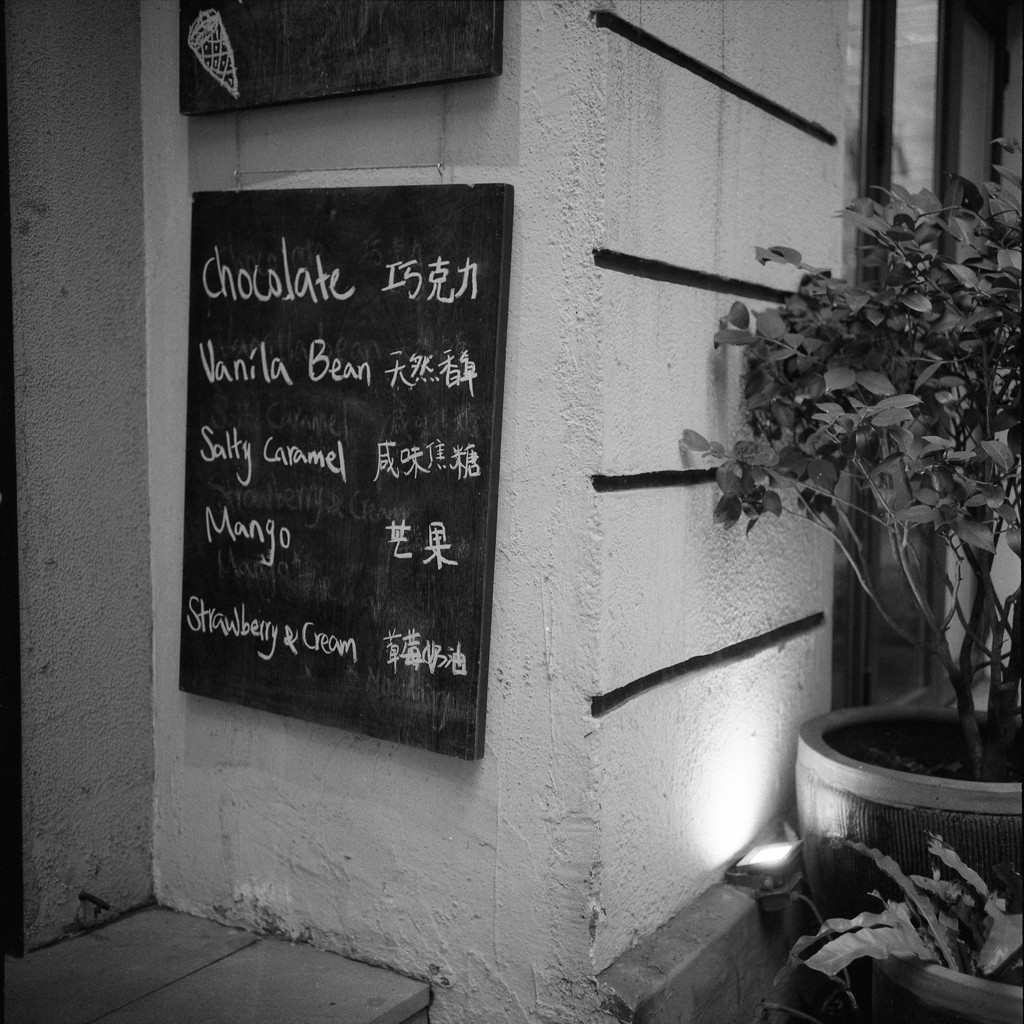 Chocolate 巧克力
Vanila Bean 天然香草
Salty Caramel 咸味焦糖
Mango 芒果
Strawberry & Cream 草莓奶油